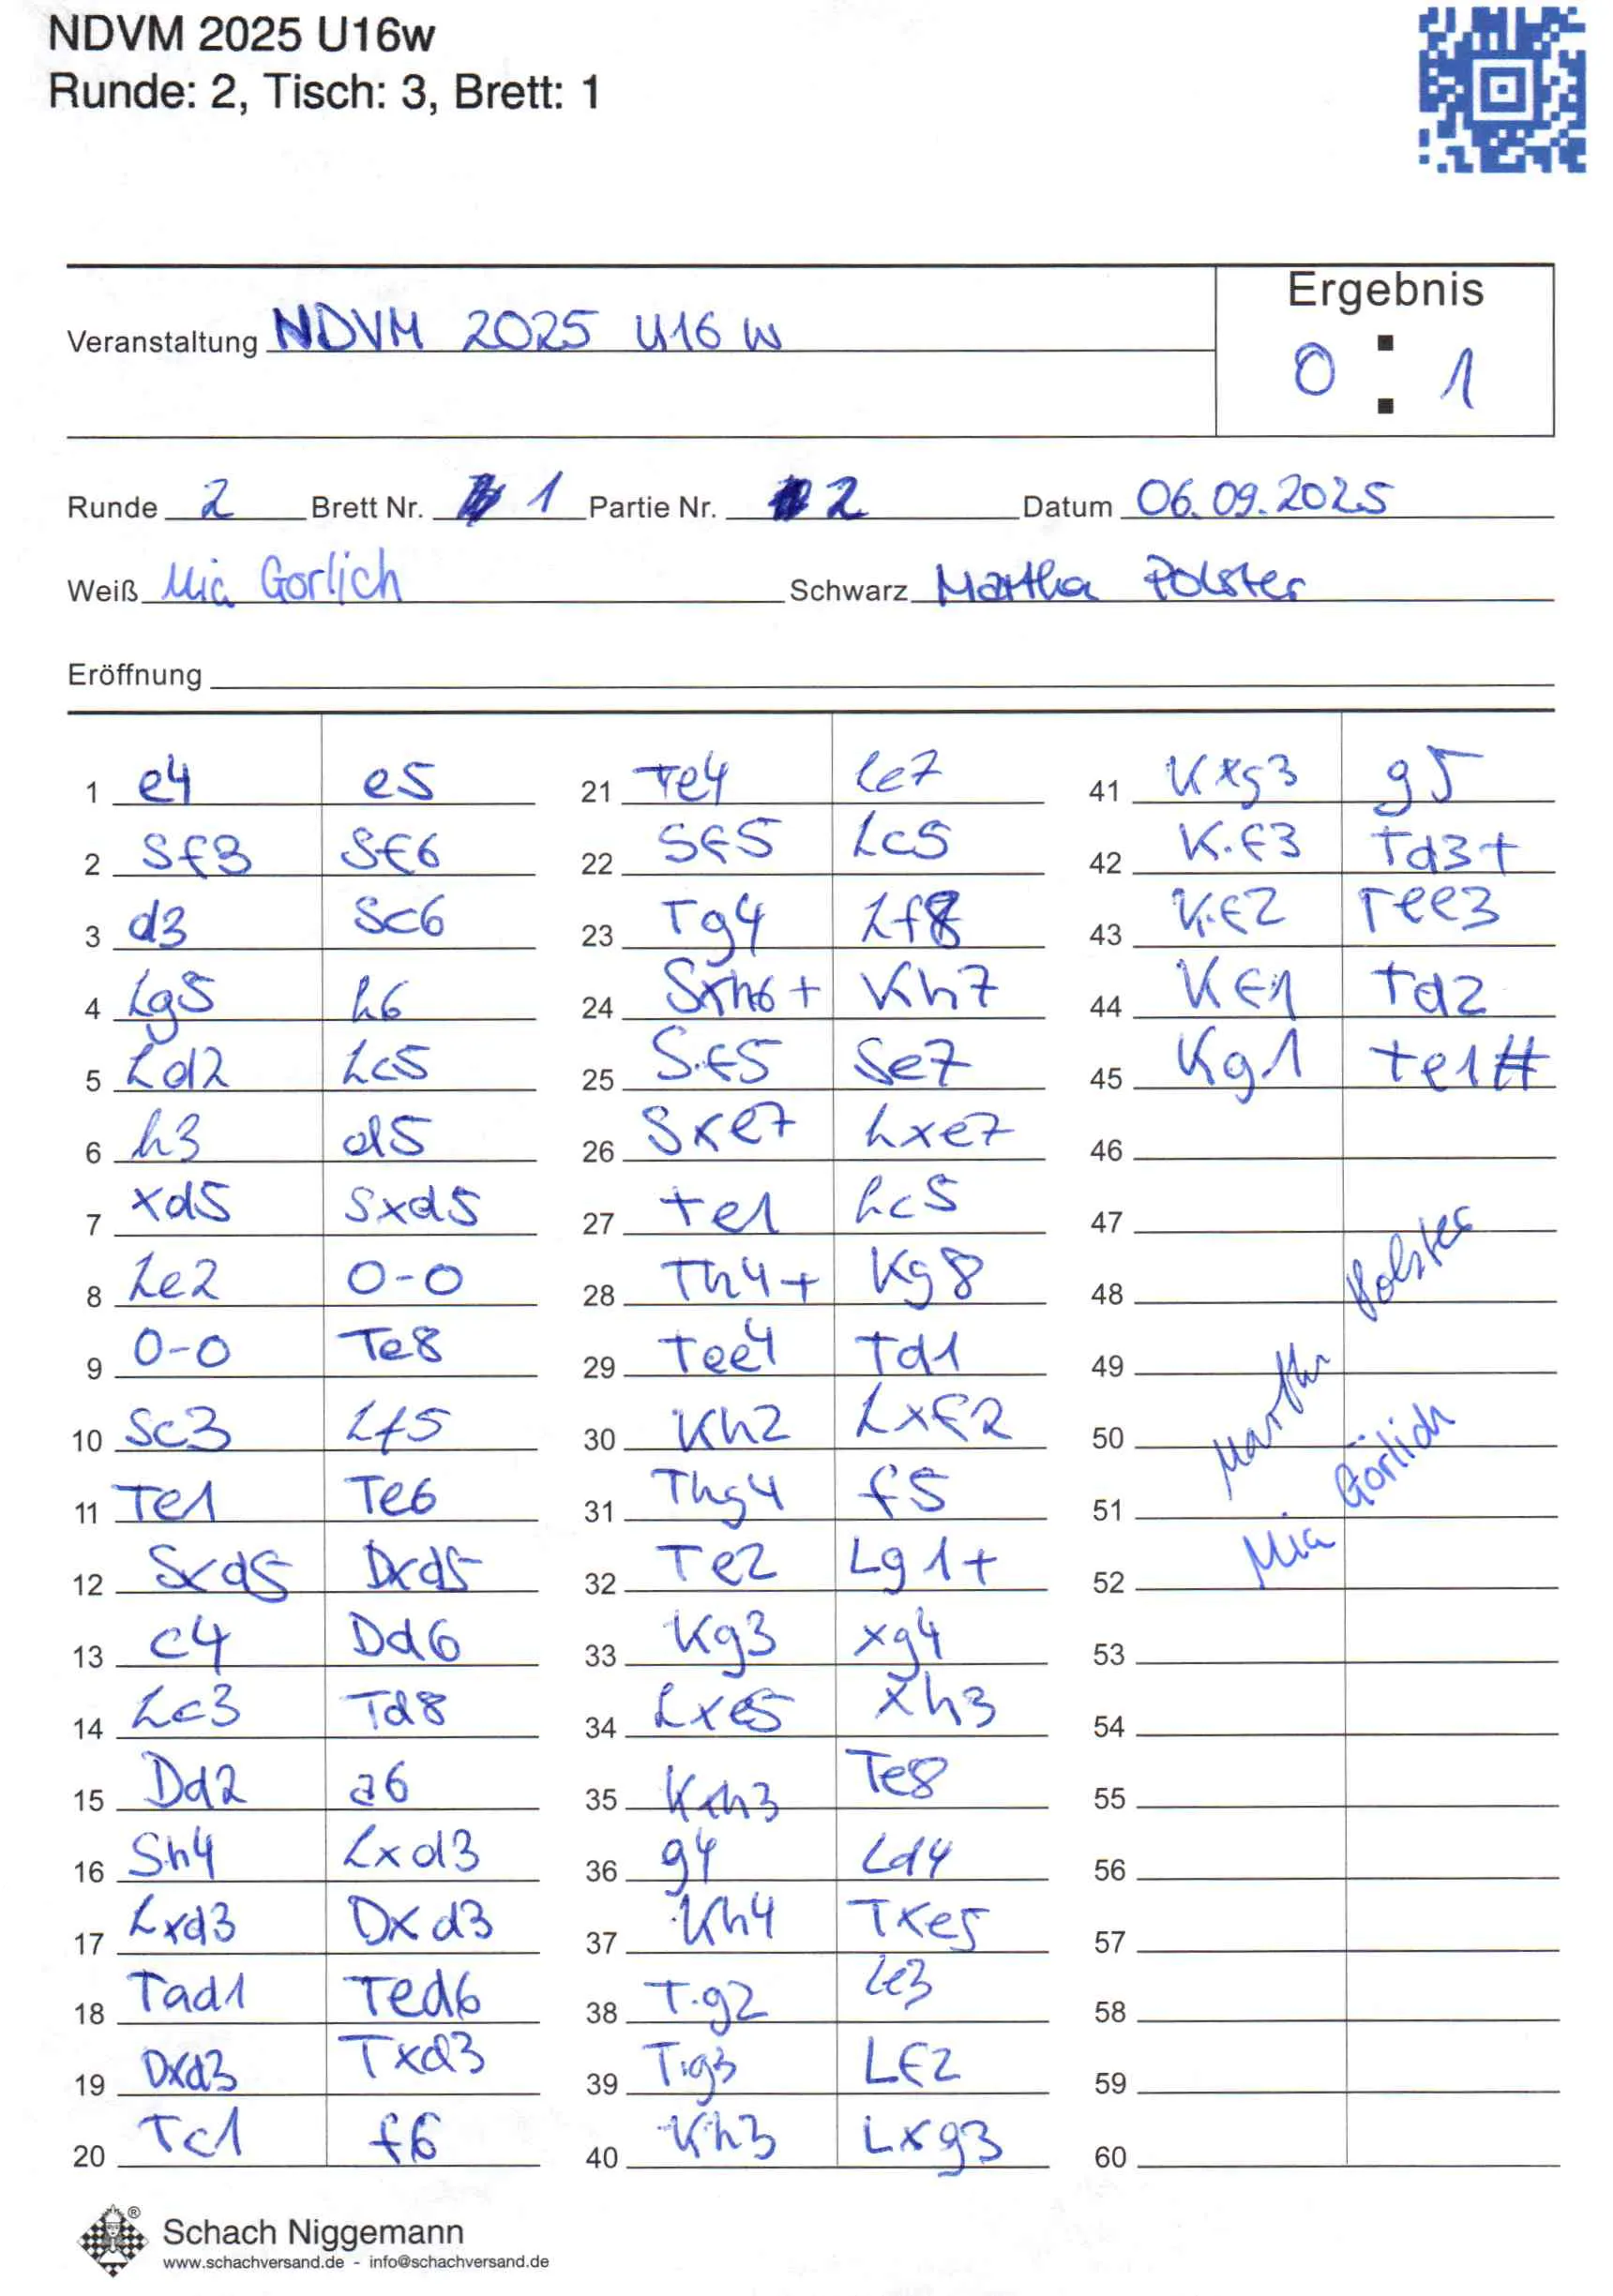 NDVM 2025 U16w
Runde: 2, Tisch: 3, Brett: 1
Ergebnis
Veranstaltung NDVM 2025 U16 w
0 : 1
Runde 2 Brett Nr. 1 Partie Nr. 2 Datum 06.09.2025
Weiß Mia Gorlich Schwarz Martha Polster
Eröffnung
1 e4 e5
2 Sf3 Sf6
3 d3 Sc6
4 Lg5 h6
5 Ld2 Lc5
6 h3 d5
7 xd5 Sxd5
8 Le2 0-0
9 0-0 Te8
10 Sc3 Lf5
11 Te1 Te6
12 Sxd5 Dxd5
13 c4 Dd6
14 Lc3 Td8
15 Dd2 a6
16 Sh4 Lxd3
17 Lxd3 Dxd3
18 Tad1 Ted6
19 Dxd3 Txd3
20 Tc1 f6
21 Te4 Le7
22 Sf5 Lc5
23 Tg4 Lf8
24 Sxh6+ Kh7
25 Sf5 Se7
26 Sxe7 Lxe7
27 Te1 Lc5
28 Th4+ Kg8
29 Tee4 Td1
30 Kh2 Lxf2
31 Thg4 f5
32 Te2 Lg1+
33 Kg3 xg4
34 Lxe5 xh3
35 Kxh3 Te8
36 g4 Ld4
37 Kh4 Txe5
38 Tg2 Le3
39 Tg3 Lf2
40 Kh3 Lxg3
41 Kxg3 g5
42 Kf3 Td3+
43 Kf2 Tee3
44 Kf1 Td2
45 Kg1 Te1#
46
47
48
49
50
51
52
53
54
55
56
57
58
59
60
Martha Polster
Mia Görlich
Schach Niggemann
www.schachversand.de - info@schachversand.de